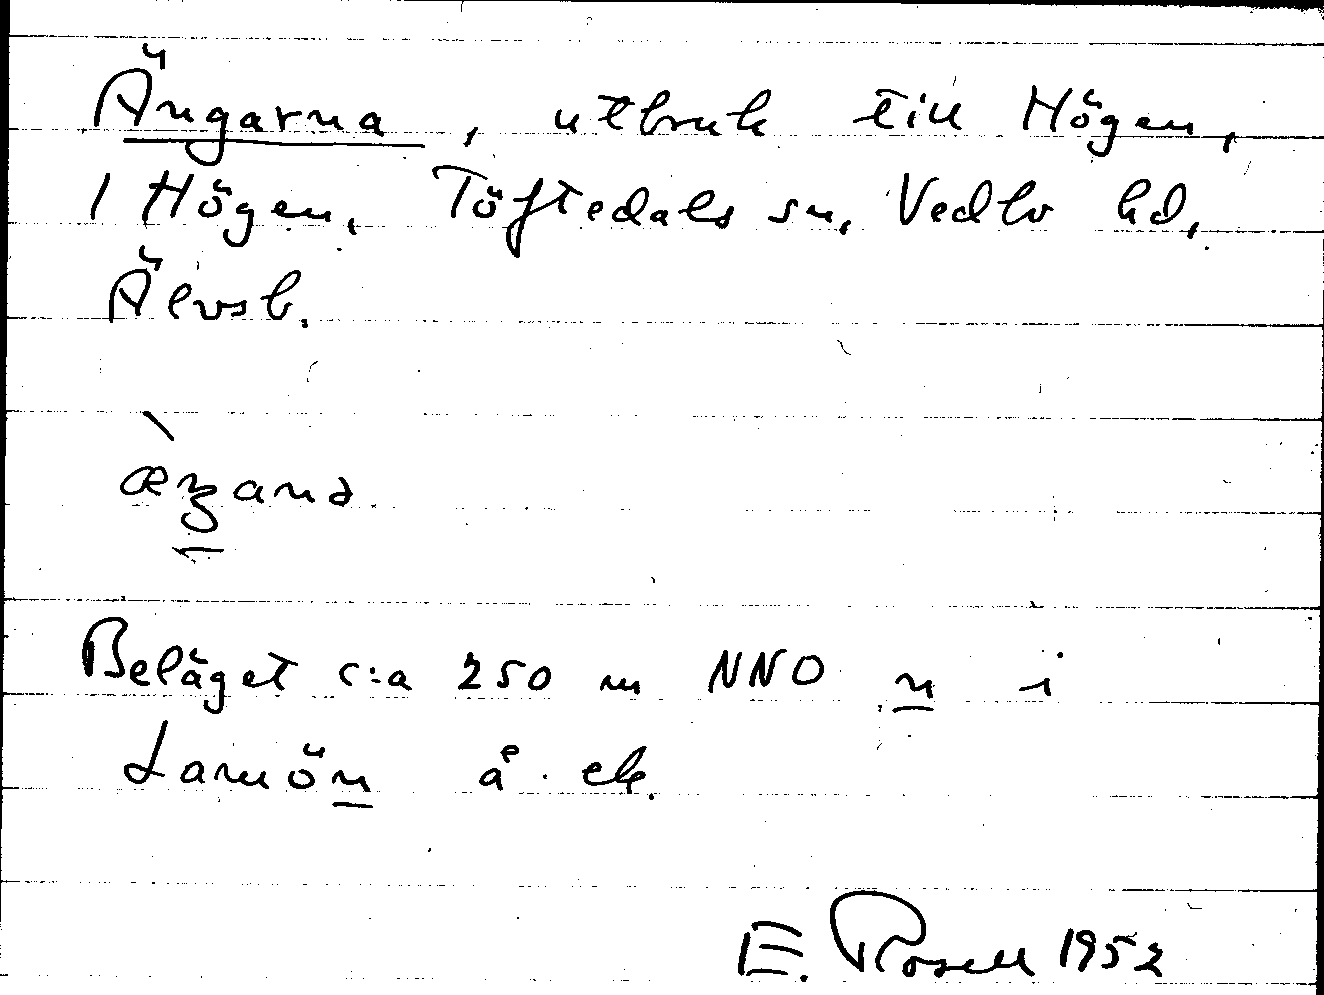 Ängarna, utbruk till Högen,
1 Högen, Töftedals sn, Vedbo hd,
Älvsb.
Beläget c:a 250 m NNO n i
Lamön å ek.
E. Rosell 1952